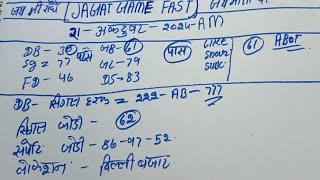 जय श्री राधे JAGAT GAME FAST जय माता
21 - अक्टूबर - 2024 - AM
DB - 50 पास GB - 61 पास LIKE
SG = 77 GL - 79 SHARE 61 ABOT
FD - 46 DS - 83 SUBC.
DB - सिंगल हरूफ = 222 - AB - 777
सिंगल जोड़ी - 62
सपोर्ट जोड़ी - 86-97-52
लोकेशन - दिल्ली बाजार